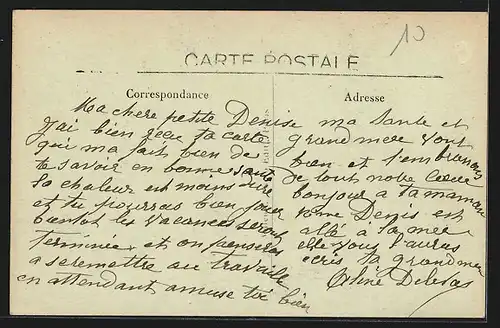 10
CARTE POSTALE
Correspondance
Adresse
Ma chere petite Denise
J'ai bien recu ta carte
qui ma fait bien de
te savoir en bonne sante
la chaleur moins dure
et tu pourras bien jouer
bientot les vacances seront
terminée et on pensera
a se remettre au travaille
en attendant amuse toi bien
ma sante et
grand mere vont
bien et t'embrassons
de tout notre Coeur
bonjour a ta maman
Denis est
allé a la mer
elle vous l'auras
ecris ta grand mere